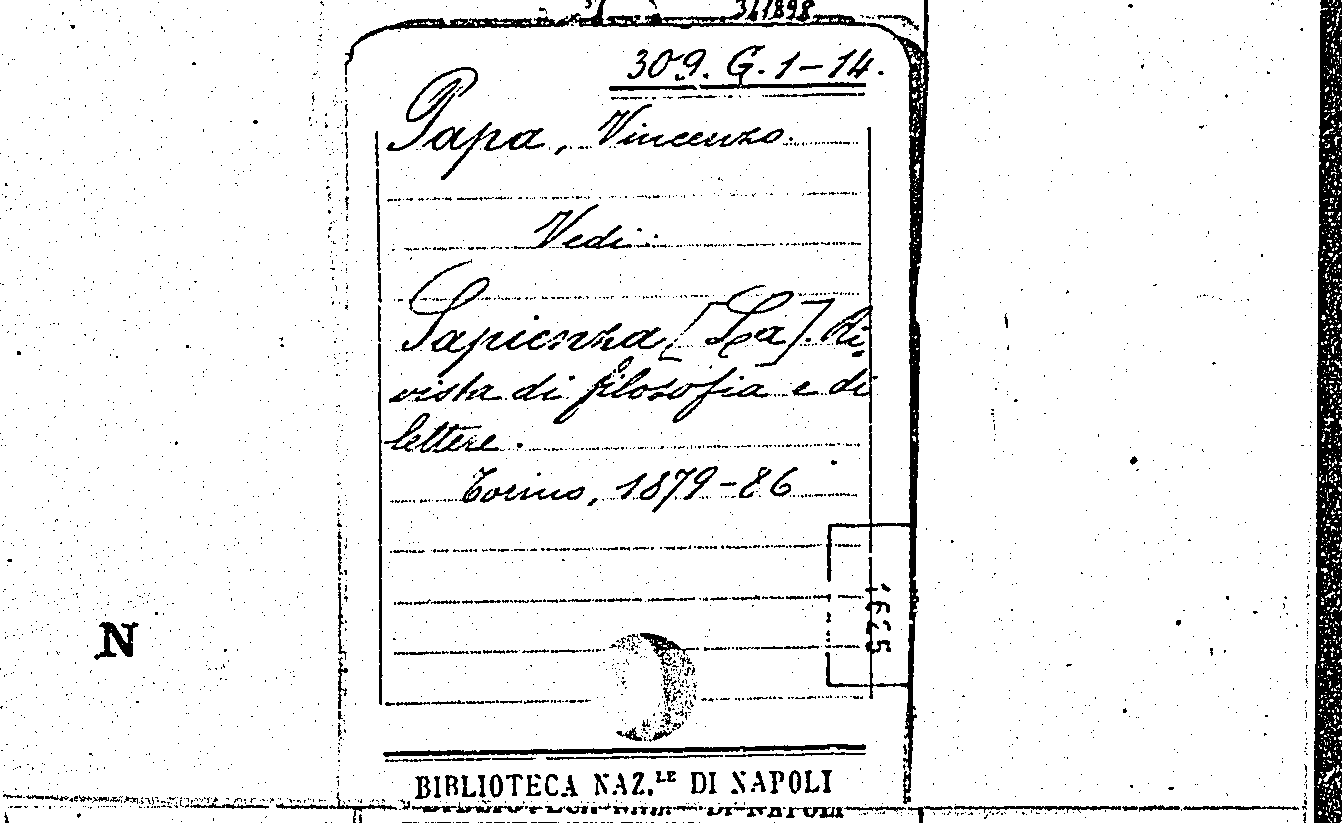 309. G. 1-14.
Papa, Vincenzo.
Vedi:
Sapienza [La]. Ri-
vista di filosofia e di
lettere.
Torino, 1879-86
N
BIBLIOTECA NAZ.LE DI NAPOLI